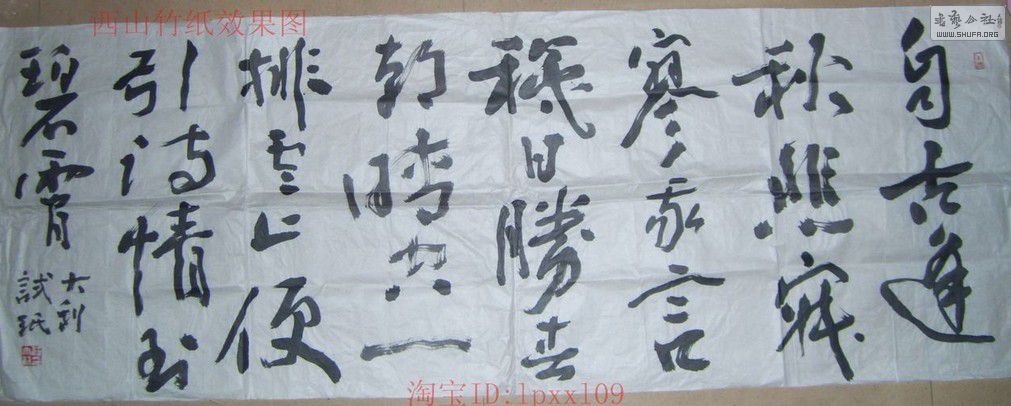 西山竹纸效果图
書藝公社
WWW.SHUFA.ORG
自古逢
秋悲寂
寥我言
秋日勝春
朝晴空一
排雲上便
引诗情到
碧霄
大利
試紙
淘宝ID:lpxx109